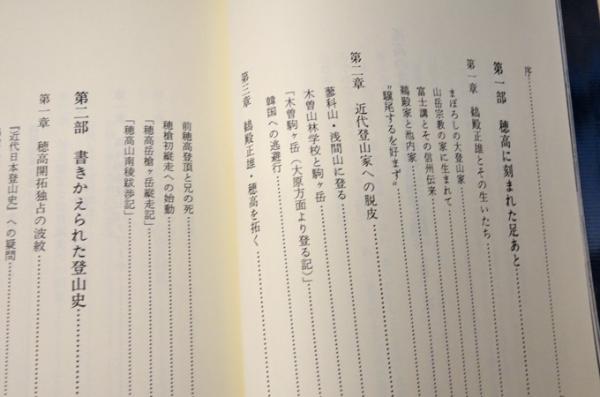 序
第一部 穂高に刻まれた足あと
第一章 鵜殿正雄とその生いたち
まぼろしの大登山家
山岳宗教の家に生まれて
富士講とその信州伝来
鵜殿家と池内家
"驥尾するを好まず"
第二章 近代登山家への脱皮
蓼科山・浅間山に登る
木曽山林学校と駒ヶ岳
「木曽駒ヶ岳(大原方面より登る記)」
韓国への逃避行
第三章 鵜殿正雄・穂高を拓く
前穂高登頂と兄の死
穂槍初縦走への始動
「穂高岳槍ヶ岳縦走記」
「穂高山南稜跋渉記」
第二部 書きかえられた登山史
第一章 穂高開拓独占の波紋
『近代日本登山史』への疑問